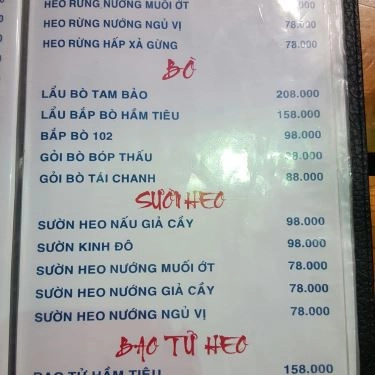 HEO RỪNG NƯỚNG MUỐI ỚT .000
HEO RỪNG NƯỚNG NGỦ VỊ 78.000
HEO RỪNG HẤP XẢ GỪNG 78.000
BÒ
LẨU BÒ TAM BẢO 208.000
LẨU BẮP BÒ HẦM TIÊU 158.000
BẮP BÒ 102 98.000
GỎI BÒ BÓP THẤU 8.000
GỎI BÒ TÁI CHANH 88.000
SƯỜN HEO
SƯỜN HEO NẤU GIẢ CẦY 98.000
SƯỜN KINH ĐÔ 98.000
SƯỜN HEO NƯỚNG MUỐI ỚT 78.000
SƯỜN HEO NƯỚNG GIẢ CẦY 78.000
SƯỜN HEO NƯỚNG NGỦ VỊ 78.000
BAO TỬ HEO
BAO TỬ HẦM TIÊU 158.000